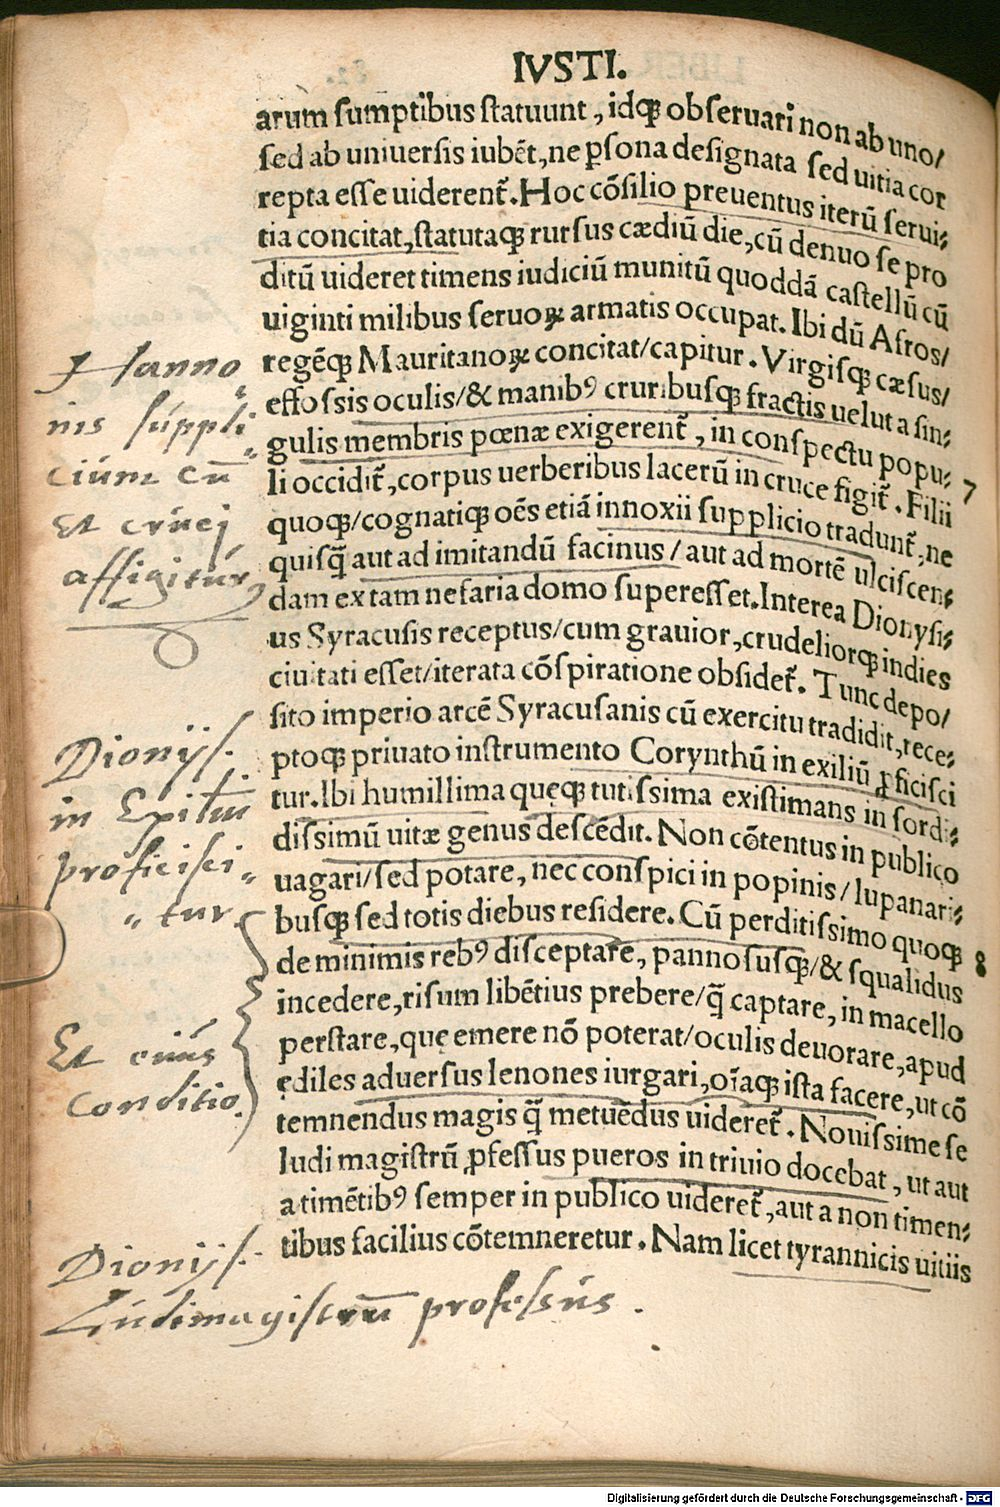 IVSTI.
arum sumptibus statuunt, idqꝫ obseruari non ab uno/
sed ab uniuersis iubēt, ne ꝑsona designata sed uitia cor
repta esse uiderent̃. Hoc cōsilio preuentus iterū serui⸗
tia concitat, statutaqꝫ rursus cædiū die, cū denuo se pro
ditū uideret timens iudiciū munitū quoddā castellū cū
uiginti milibus seruoꝝ armatis occupat. Ibi dū Afros/
regēqꝫ Mauritanoꝝ concitat/capitur. Virgisqꝫ cæsus/
effossis oculis/& manibꝰ cruribusqꝫ fractis uelut a sin⸗
gulis membris pœnæ exigerent̃, in conspectu popu⸗
li occidit̃, corpus uerberibus lacerū in cruce figit̃. Filii
7
quoqꝫ/cognatiqꝫ oēs etiā innoxii supplicio tradunt̃, ne
quisq̃ aut ad imitandū facinus/aut ad mortē ulciscen⸗
dam ex tam nefaria domo superesset. Interea Dionysi⸗
us Syracusis receptus/cum grauior, crudeliorqꝫ indies
ciuitati esset/iterata cōspiratione obsidet̃. Tunc depo/
sito imperio arcē Syracusanis cū exercitu tradidit, rece⸗
ptoqꝫ priuato instrumento Corynthū in exiliū ꝓficisci
tur. Ibi humillima quęqꝫ tutissima existimans in sordi⸗
dissimū uitæ genus descēdit. Non cōtentus in publico
uagari/sed potare, nec conspici in popinis/lupanari⸗
busqꝫ sed totis diebus residere. Cū perditissimo quoqꝫ
8
de minimis rebꝰ disceptare, pannosusqꝫ/& squalidus
incedere, risum libētius prebere/q̃ captare, in macello
perstare, quę emere nō poterat/oculis deuorare, apud
ędiles aduersus lenones iurgari, oīaqꝫ ista facere, ut cō
temnendus magis q̃ metuēdus uideret̃. Nouissime se
ludi magistrū ꝓfessus pueros in triuio docebat, ut aut
a timētibꝰ semper in publico uideret̃, aut a non timen⸗
tibus facilius cōtemneretur. Nam licet tyrannicis uitiis
Hanno⸗
nis suppli⸗
cium cū
Et cruci
affigitur
Dionijs.
in Exiliū
proficisci⸗
⸗tur
Et eius
Conditio.
Dionijs.
Ludimagistrū professus.
Digitalisierung gefördert durch die Deutsche Forschungsgemeinschaft - DFG